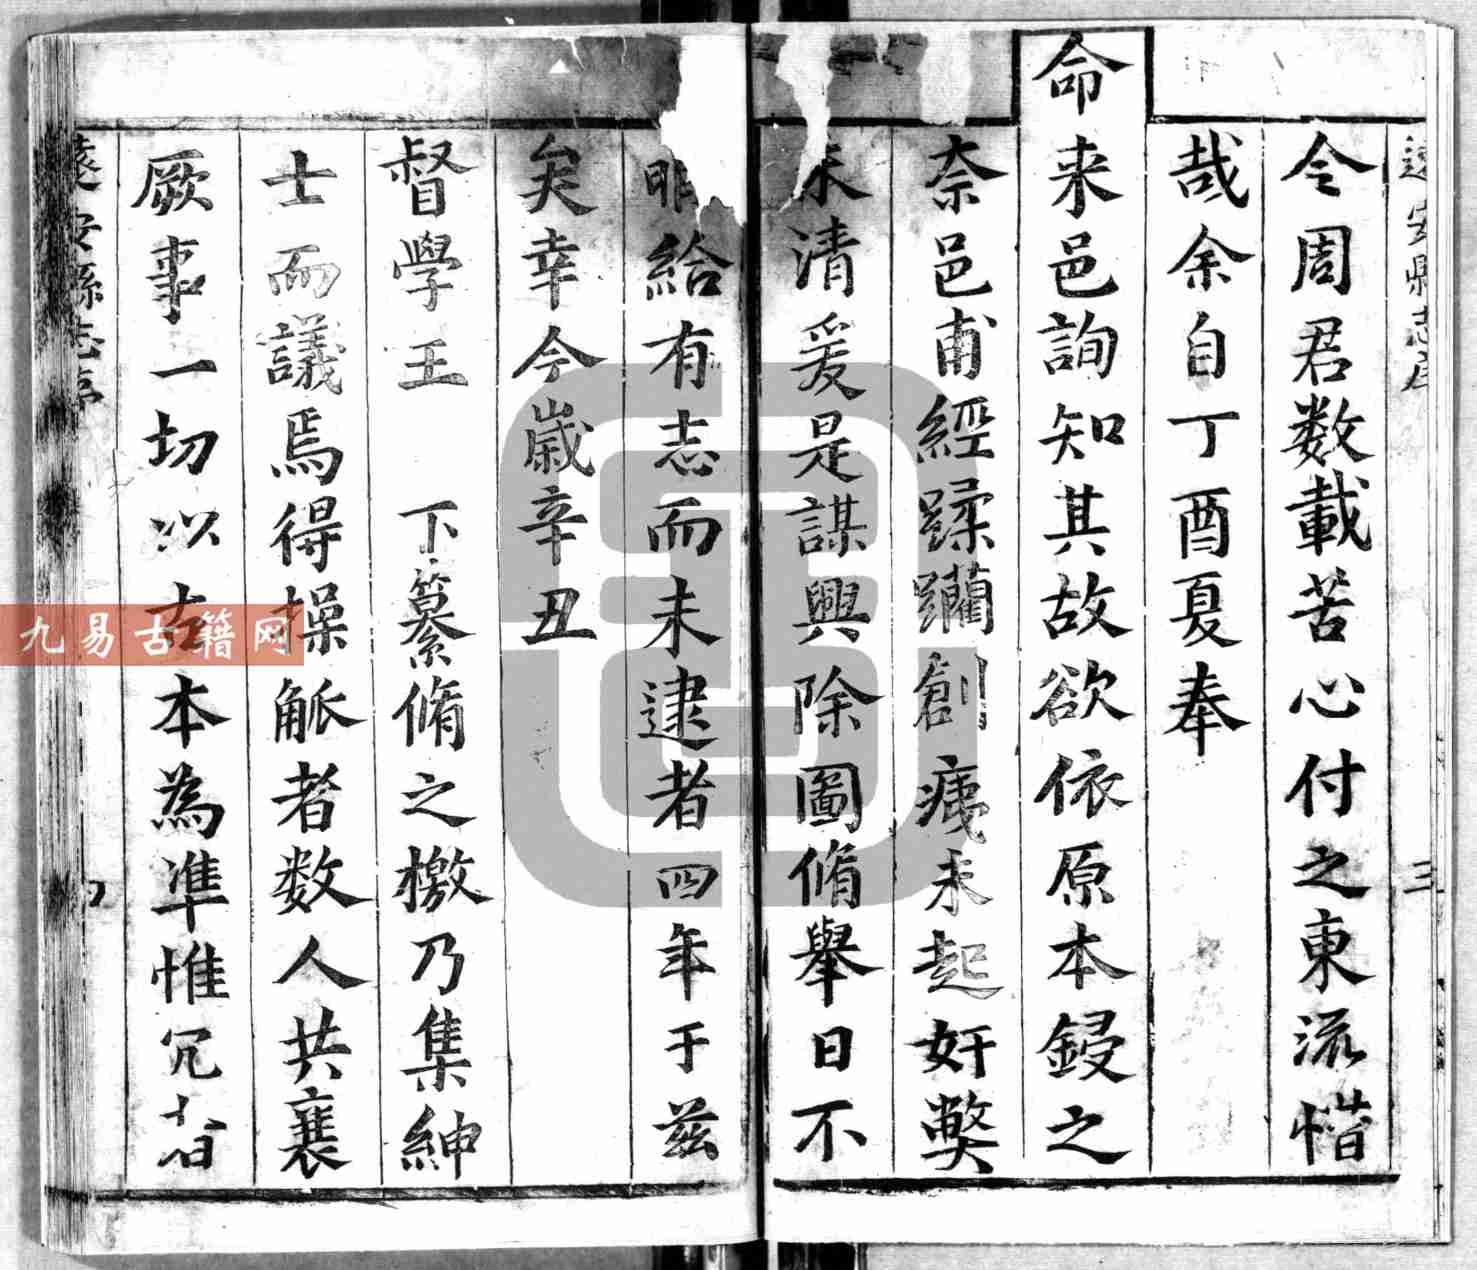 遠安縣志序
三
令周君数載苦心付之東流惜
哉余自丁酉夏奉
命来邑詢知其故欲依原本鋟之
奈邑甫經蹂躪創痍未起奸獘
未清爰是謀興除圖脩舉日不
暇給有志而未逮者四年于兹
矣幸今歲辛丑
督學王 下纂脩之檄乃集紳
士而議焉得操觚者数人共襄
厥事一切以古本為準惟冗者
遠安縣志序
九易古籍网